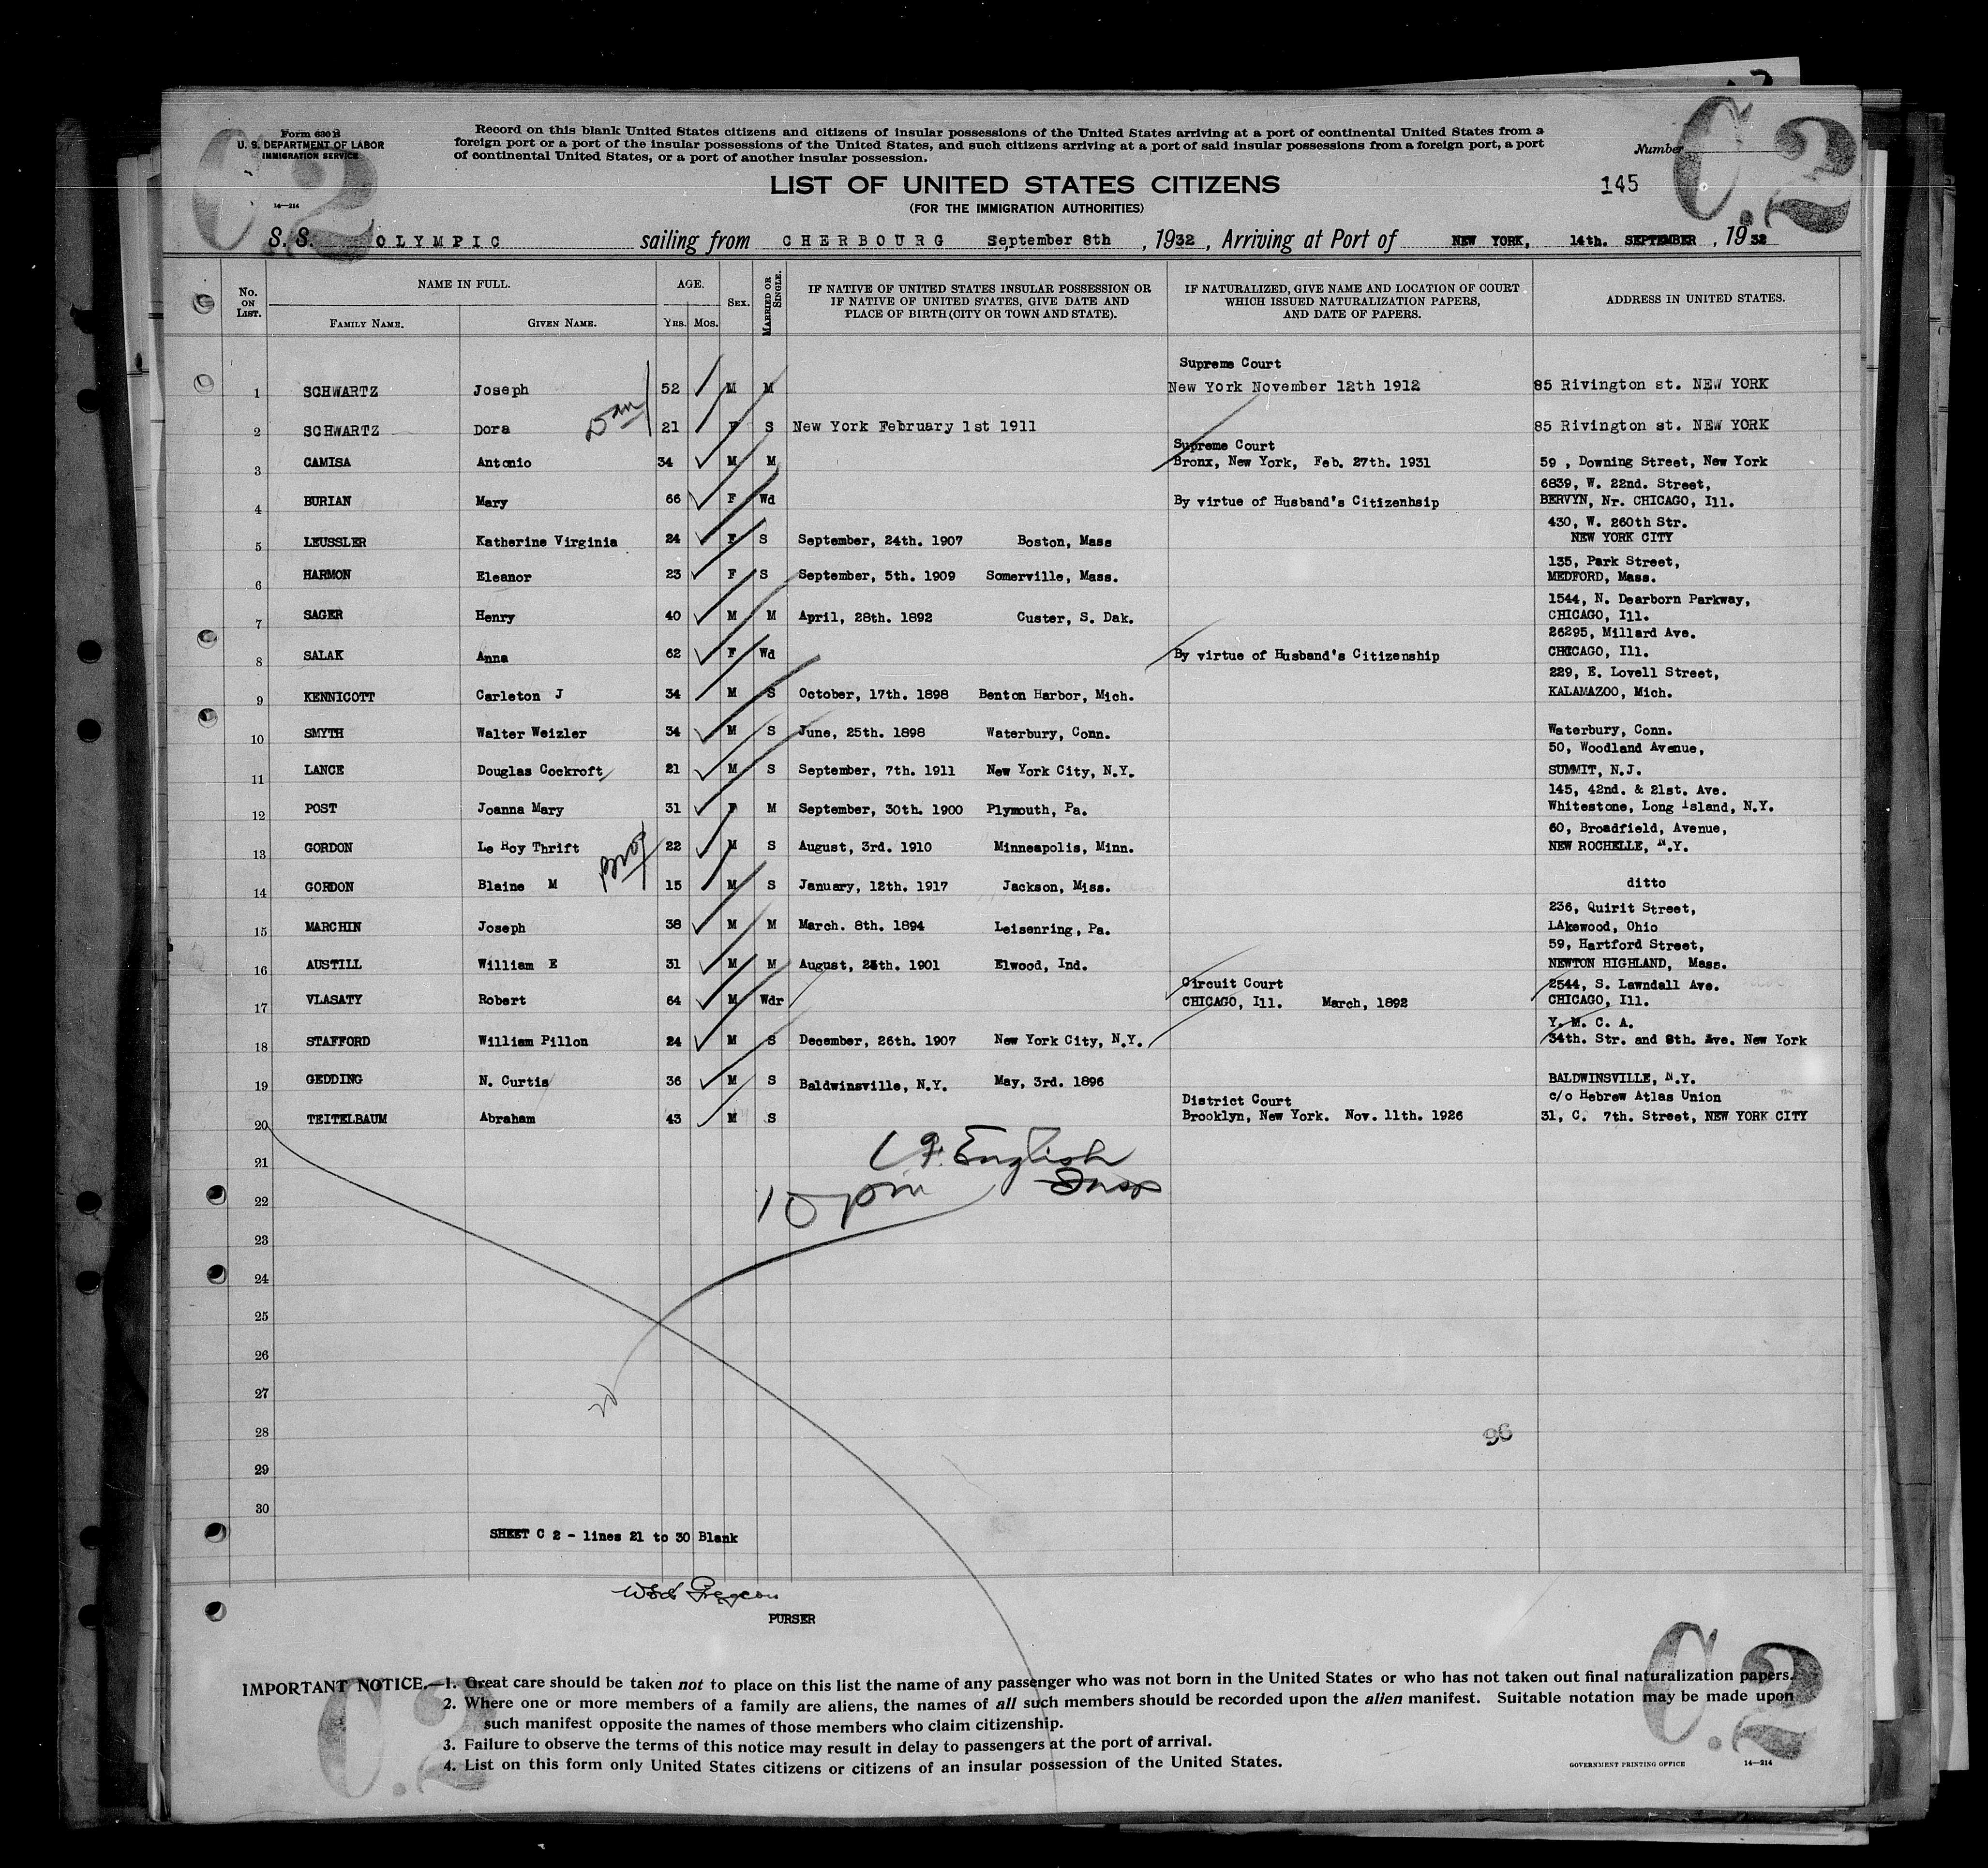 C.2
C.2
Form 630 B
U. S. DEPARTMENT OF LABOR
IMMIGRATION SERVICE
14—214
Record on this blank United States citizens and citizens of insular possessions of the United States arriving at a port of continental United States from a
foreign port or a port of the insular possessions of the United States, and such citizens arriving at a port of said insular possessions from a foreign port, a port
of continental United States, or a port of another insular possession.
Number
LIST OF UNITED STATES CITIZENS
145
(FOR THE IMMIGRATION AUTHORITIES)
S. S. OLYMPIC sailing from CHERBOURG September 8th , 1932 , Arriving at Port of NEW YORK, 14th. SEPTEMBER , 1932
No. ON LIST. NAME IN FULL. AGE. SEX. MARRIED OR SINGLE. IF NATIVE OF UNITED STATES INSULAR POSSESSION OR IF NATIVE OF UNITED STATES, GIVE DATE AND PLACE OF BIRTH (CITY OR TOWN AND STATE). IF NATURALIZED, GIVE NAME AND LOCATION OF COURT WHICH ISSUED NATURALIZATION PAPERS, AND DATE OF PAPERS. ADDRESS IN UNITED STATES.
FAMILY NAME. GIVEN NAME. YRS. MOS.
Supreme Court
1 SCHWARTZ Joseph 52 M M New York November 12th 1912 85 Rivington st. NEW YORK
2 SCHWARTZ Dora 21 F S New York February 1st 1911 85 Rivington st. NEW YORK
Supreme Court
3 CAMISA Antonio 34 M M Bronx, New York, Feb. 27th. 1931 59 , Downing Street, New York
6839, W. 22nd. Street,
4 BURIAN Mary 66 F Wd By virtue of Husband's Citizenhsip BERVYN, Nr. CHICAGO, Ill.
430, W. 260th Str.
5 LEUSSLER Katherine Virginia 24 F S September, 24th. 1907 Boston, Mass NEW YORK CITY
135, Park Street,
6 HARMON Eleanor 23 F S September, 5th. 1909 Somerville, Mass. MEDFORD, Mass.
1544, N. Dearborn Parkway,
7 SAGER Henry 40 M M April, 28th. 1892 Custer, S. Dak. CHICAGO, Ill.
26295, Millard Ave.
8 SALAK Anna 62 F Wd By virtue of Husband's Citizenship CHICAGO, Ill.
229, E. Lovell Street,
9 KENNICOTT Carleton J 34 M S October, 17th. 1898 Benton Harbor, Mich. KALAMAZOO, Mich.
10 SMYTH Walter Weizler 34 M S June, 25th. 1898 Waterbury, Conn. Waterbury, Conn.
50, Woodland Avenue,
11 LANCE Douglas Cockroft 21 M S September, 7th. 1911 New York City, N.Y. SUMMIT, N.J.
145, 42nd. & 21st. Ave.
12 POST Joanna Mary 31 F M September, 30th. 1900 Plymouth, Pa. Whitestone, Long Island, N.Y.
60, Broadfield, Avenue,
13 GORDON Le Roy Thrift 22 M S August, 3rd. 1910 Minneapolis, Minn. NEW ROCHELLE, N.Y.
14 GORDON Blaine M 15 M S January, 12th. 1917 Jackson, Miss. ditto
236, Quirit Street,
15 MARCHIN Joseph 38 M M March. 8th. 1894 Leisenring, Pa. LAkewood, Ohio
59, Hartford Street,
16 AUSTILL William E 31 M M August, 25th. 1901 Elwood, Ind. NEWTON HIGHLAND, Mass.
Circuit Court 2544, S. Lawndall Ave.
17 VLASATY Robert 64 M Wdr CHICAGO, Ill. March, 1892 CHICAGO, Ill.
Y. M. C. A.
18 STAFFORD William Pillon 24 M S December, 26th. 1907 New York City, N.Y. 34th. Str. and 8th. Ave. New York
19 GEDDING N. Curtis 36 M S Baldwinsville, N.Y. May, 3rd. 1896 BALDWINSVILLE, N.Y.
District Court c/o Hebrew Atlas Union
20 TEITELBAUM Abraham 43 M S Brooklyn, New York. Nov. 11th. 1926 31, C. 7th. Street, NEW YORK CITY
English
21
10 pm Insp
22
23
24
25
26
27
28 96
29
30
SHEET C 2 - lines 21 to 30 Blank
PURSER
C.2
C.2
IMPORTANT NOTICE.—1. Great care should be taken not to place on this list the name of any passenger who was not born in the United States or who has not taken out final naturalization papers.
2. Where one or more members of a family are aliens, the names of all such members should be recorded upon the alien manifest. Suitable notation may be made upon
such manifest opposite the names of those members who claim citizenship.
3. Failure to observe the terms of this notice may result in delay to passengers at the port of arrival.
4. List on this form only United States citizens or citizens of an insular possession of the United States.
GOVERNMENT PRINTING OFFICE 14—214